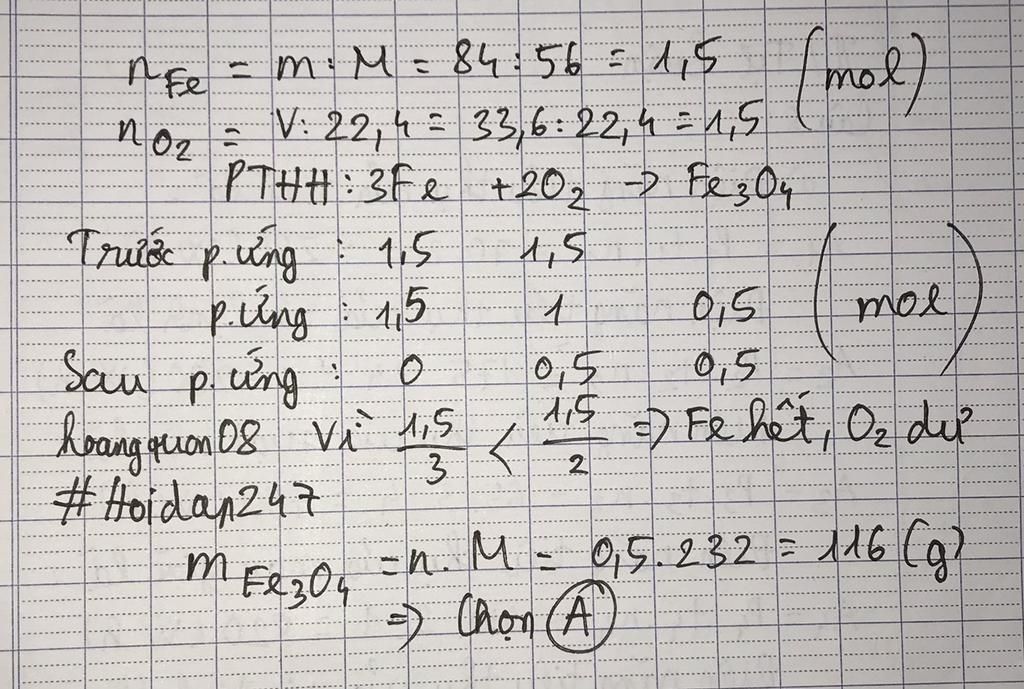 n Fe = m : M = 84 : 56 = 1,5 (mol)
n O2 = V : 22,4 = 33,6 : 22,4 = 1,5
PTHH : 3Fe + 2O2 → Fe3O4
Trước p.ứng : 1,5 1,5
p.ứng : 1,5 1 0,5 (mol)
Sau p.ứng : 0 0,5 0,5
hoangquan08 Vì 1,5/3 < 1,5/2 => Fe hết, O2 dư
#Hoidap247
m Fe3O4 = n . M = 0,5 . 232 = 116 (g)
=> Chọn A